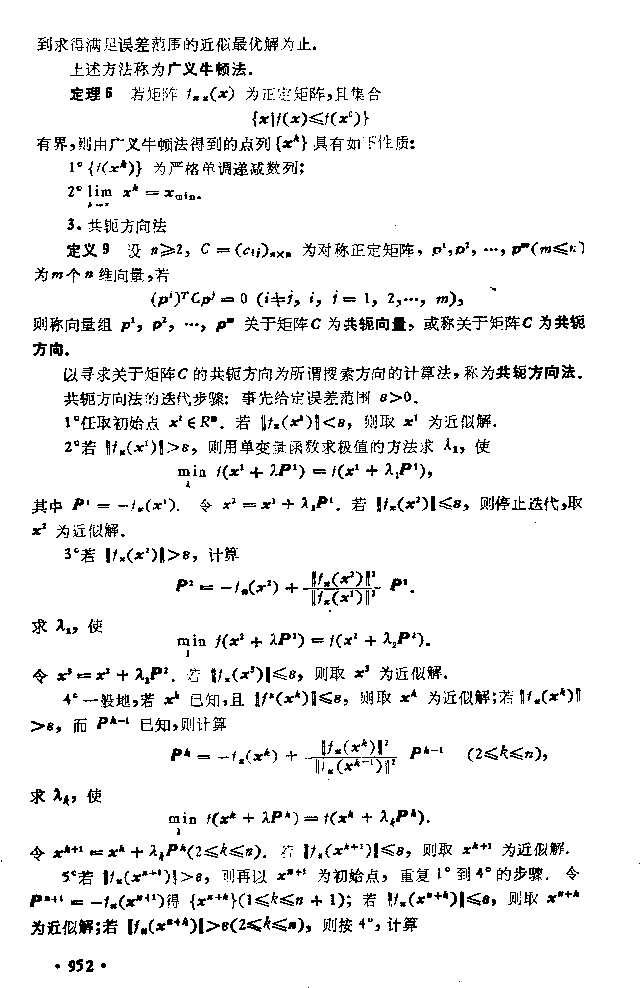 到求得满足误差范围的近似最优解为止.
上述方法称为广义牛顿法.
定理6 若矩阵 f_{xx}(x) 为正定矩阵,且集合
{x|f(x)≤f(x⁰)}
有界,则由广义牛顿法得到的点列{x^k}具有如下性质:
1° {f(x^k)} 为严格单调递减数列;
2° lim_{k→∞} x^k = x_{min}.
3. 共轭方向法
定义9 设 n≥2, C = (c_{ij})_{n×n} 为对称正定矩阵, p¹,p², ···, p^m(m≤n)
为m个n维向量,若
(p^i)^T Cp^j = 0 (i≠j, i, j = 1, 2,···, m),
则称向量组 p¹, p², ···, p^m 关于矩阵C为共轭向量, 或称关于矩阵C为共轭
方向.
以寻求关于矩阵C的共轭方向为所谓搜索方向的计算法,称为共轭方向法.
共轭方向法的迭代步骤: 事先给定误差范围 ε>0.
1°任取初始点 x¹∈R^n. 若 ‖f_x(x¹)‖<ε, 则取 x¹ 为近似解.
2°若 ‖f_x(x¹)‖>ε, 则用单变量函数求极值的方法求 λ₁, 使
min_λ f(x¹ + λP¹) = f(x¹ + λ₁P¹),
其中 P¹ = −f_x(x¹). 令 x² = x¹ + λ₁P¹. 若 ‖f_x(x²)‖≤ε, 则停止迭代,取
x² 为近似解.
3°若 ‖f_x(x²)‖>ε, 计算
P² = −f_x(x²) + ‖f_x(x²)‖²/‖f_x(x¹)‖² P¹.
求 λ₂, 使
min_λ f(x² + λP²) = f(x² + λ₂P²).
令 x³ = x² + λ₂P². 若 ‖f_x(x³)‖≤ε, 则取 x³ 为近似解.
4°一般地,若 x^k 已知,且 ‖f^x(x^k)‖≤ε, 则取 x^k 为近似解;若 ‖f_x(x^k)‖
>ε, 而 P^{k−1} 已知,则计算
P^k = −f_x(x^k) + ‖f_x(x^k)‖²/‖f_x(x^{k−1})‖² P^{k−1} (2≤k≤n),
求 λ_k, 使
min_λ f(x^k + λP^k) = f(x^k + λ_kP^k).
令 x^{k+1} = x^k + λ_kP^k(2≤k≤n). 若 ‖f_x(x^{k+1})‖≤ε, 则取 x^{k+1} 为近似解.
5°若 ‖f_x(x^{n+1})‖>ε, 则再以 x^{n+1} 为初始点, 重复1°到4°的步骤. 令
P^{n+1} = −f_x(x^{n+1})得 {x^{n+k}}(1≤k≤n + 1); 若 ‖f_x(x^{n+k})‖≤ε, 则取 x^{n+k}
为近似解;若 ‖f_x(x^{n+k})‖>ε(2≤k≤n), 则按4°, 计算
·952·